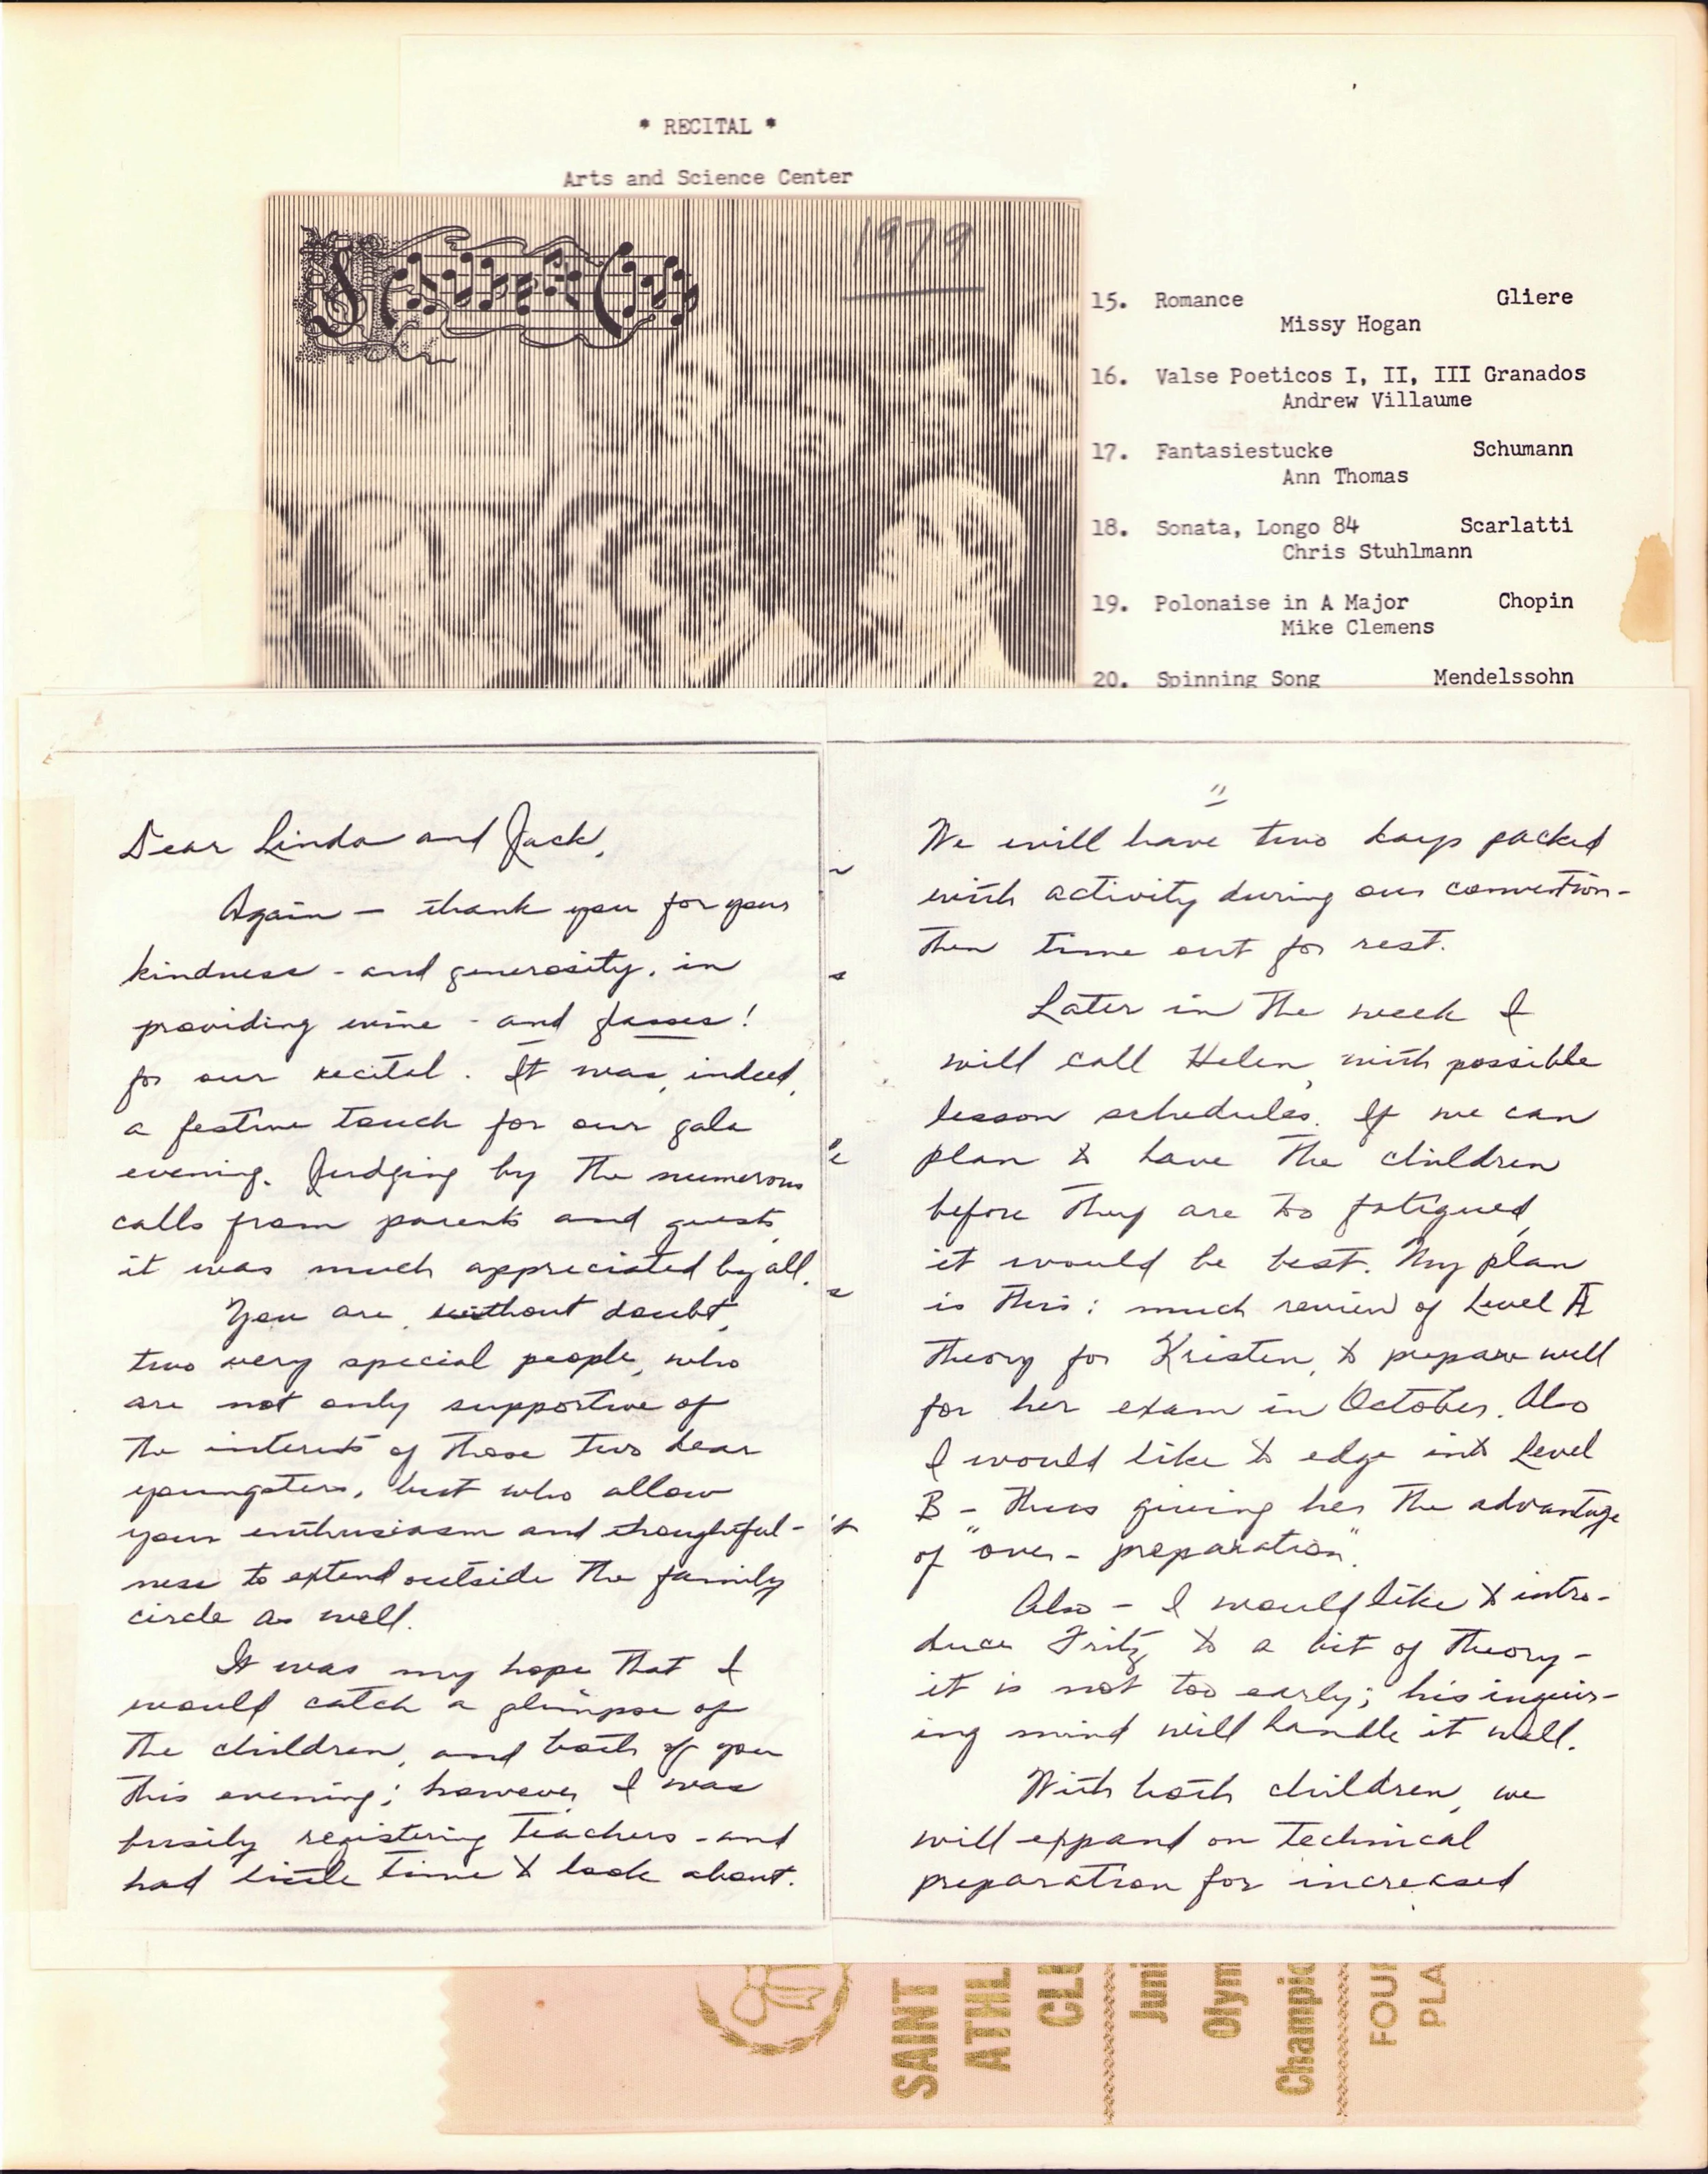 * RECITAL *
Arts and Science Center
1979
15. Romance Gliere
Missy Hogan
16. Valse Poeticos I, II, III Granados
Andrew Villaume
17. Fantasiestucke Schumann
Ann Thomas
18. Sonata, Longo 84 Scarlatti
Chris Stuhlmann
19. Polonaise in A Major Chopin
Mike Clemens
20. Spinning Song Mendelssohn
Dear Linda and Jack,
Again — thank you for your
kindness - and generosity, in
providing wine - and glasses!
for our recital. It was, indeed,
a festive touch for our gala
evening. Judging by the numerous
calls from parents and guests,
it was much appreciated by all.
You are, without doubt,
two very special people, who
are not only supportive of
the interests of those two dear
youngsters, but who allow
your enthusiasm and thoughtful-
ness to extend outside the family
circle as well.
It was my hope that I
would catch a glimpse of
the children, and both of you
this evening; however, I was
busily registering teachers - and
had little time to look about.
"
We will have two days packed
with activity during our convention -
then time out for rest.
Later in the week I
will call Helen, with possible
lesson schedules. If we can
plan to have the children
before they are too fatigued,
it would be best. My plan
is this: much review of Level A
theory for Kristen, to prepare well
for her exam in October. Also
I would like to edge into Level
B - thus giving her the advantage
of "over-preparation".
Also - I would like to intro-
duce Fritz to a bit of theory -
it is not too early; his inquir-
ing mind will handle it well.
With both children, we
will expand on technical
preparation for increased
SAINT
ATHL
CLU
Juni
Olym
Champio
FOUR
PLA